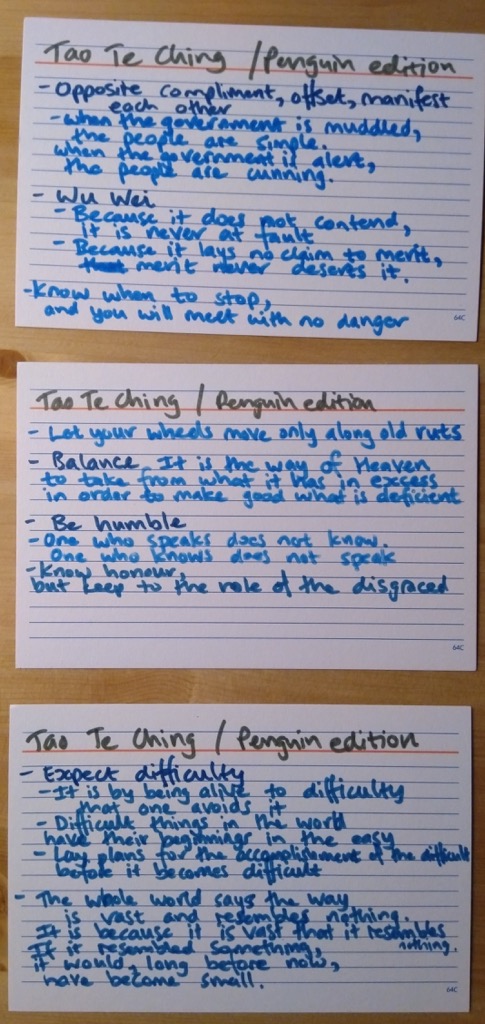 Tao Te Ching / Penguin edition
- Opposite compliment, offset, manifest
each other
- when the government is muddled,
the people are simple.
when the government is alert,
the people are cunning.
- Wu Wei
- Because it does not contend,
it is never at fault
- Because it lays no claim to merit,
merit never deserts it.
- Know when to stop,
and you will meet with no danger
64C
Tao Te Ching / Penguin edition
- Let your wheels move only along old ruts
- Balance It is the way of Heaven
to take from what it has in excess
in order to make good what is deficient
- Be humble
- One who speaks does not know.
One who knows does not speak
- Know honour,
but keep to the role of the disgraced
64C
Tao Te Ching / Penguin edition
- Expect difficulty
- It is by being alive to difficulty
that one avoids it
- Difficult things in the world
have their beginnings in the easy
- Lay plans for the accomplishment of the difficult
before it becomes difficult
- The whole world says the way
is vast and resembles nothing.
It is because it is vast that it resembles
nothing.
If it resembled something,
it would, long before now,
have become small.
64C